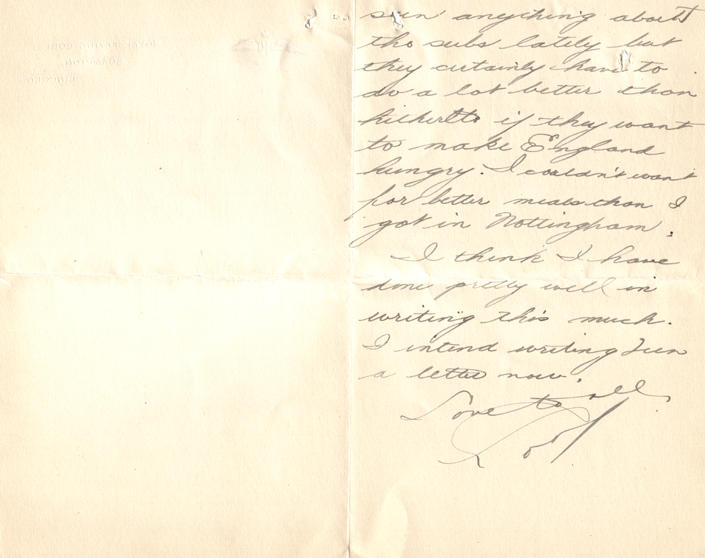 seen anything about
the subs lately but
they certainly have to
do a lot better than
hitherto if they want
to make England
hungry. I couldn't want
for better meals than I
got in Nottingham.
I think I have
done pretty well in
writing this much.
I intend writing
a letter now.
Love to all